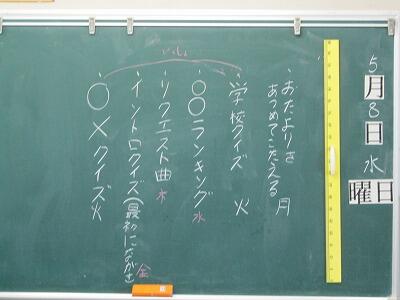 5月8日水曜日
・おたよりを
あつめてこたえる 月
・学校クイズ 火
・○○ランキング 水
・リクエスト曲 木
・イントロクイズ(最初にながす) 金
・○×クイズ 火
いっしょ